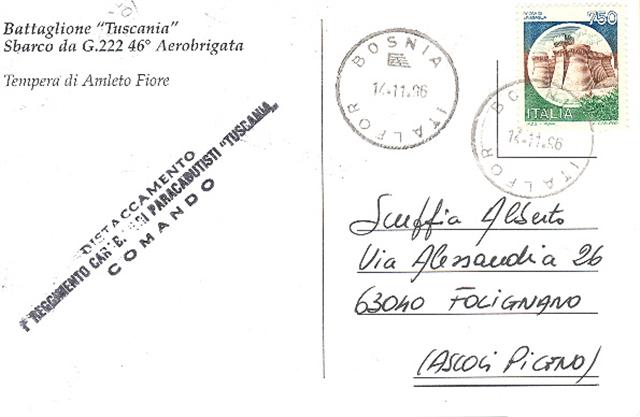 Battaglione "Tuscania"
Sbarco da G.222 46° Aerobrigata
Tempera di Amleto Fiore
DISTACCAMENTO
REGGIMENTO PARACADUTISTI "TUSCANIA"
COMANDO
BOSNIA
14-11-96
ITALFOR
750
ITALIA
BOSNIA
14-11-96
ITALFOR
Alberto
Via Alessandria 26
63040 FOLIGNANO
(ASCOLI PICENO)